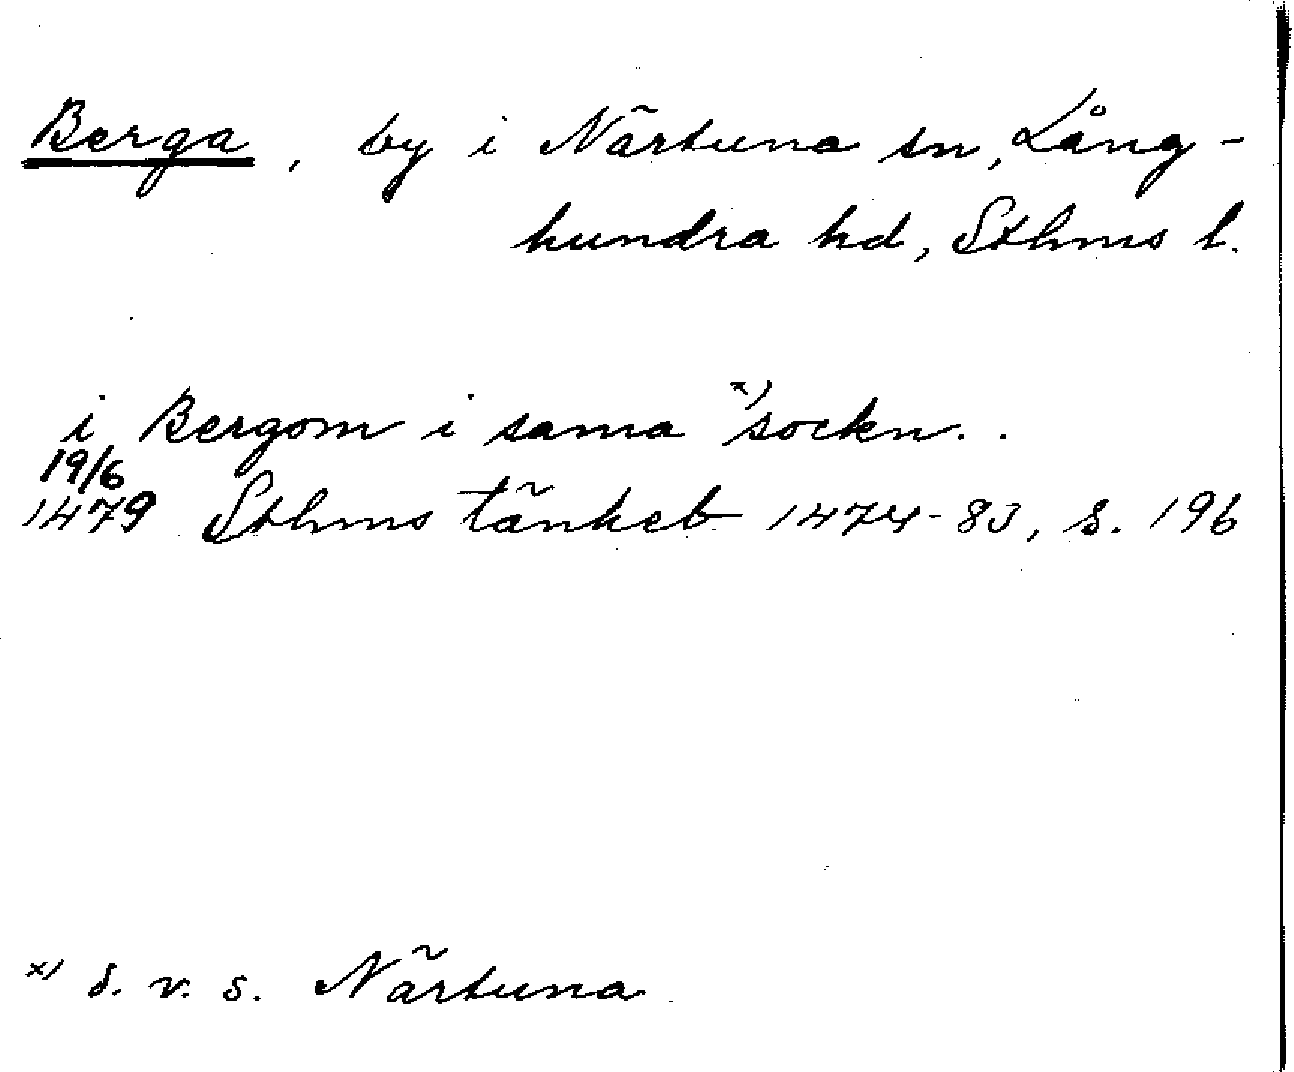 Berga, by i Närtuna sn, Lång-
hundra hd, Sthms l.
i Bergom i sama x) sockn..
19/6
1479 Sthms tänkeb 1474-83, s. 196
x) d. v. s. Närtuna